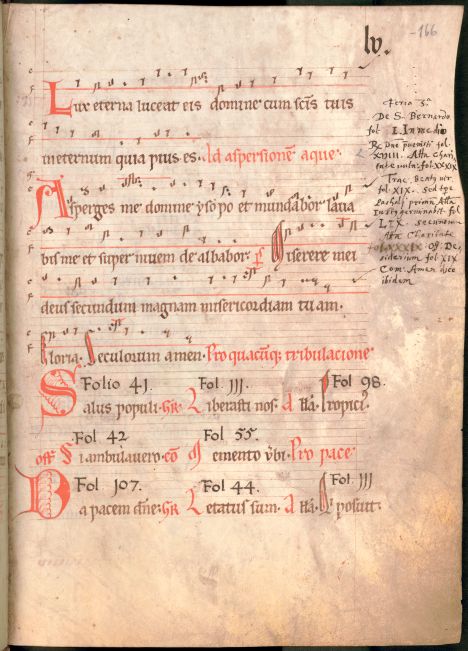 lv.
-166
Lux eterna luceat eis domine cum scīs tuis
ineternum quia pius es. Ad aspersionem aque.
Asperges me domine ysopo et mundabor lava
bis me et super nivem dealbabor. P Miserere mei
deus secundum magnam misericordiam tuam.
Gloria. Seculorum amen. Pro quacūq; tribulacione
Folio 41. Fol III. Fol 98.
Salus populi. GR Liberasti nos. Alla. Propici
Fol. 42 Fol. 55.
off Si ambulavero. co Memento vbi. Pro pace
Fol. 107. Fol 44. Fol. III
Da pacem dne. GR Letatus sum. Alla. Q posuit.
feria 3ª
De S. Bernardo
fol I. In medio
fol.
XIIII. Alla
fol. XXXIX
Trac. Beatus vir
fol. XIX.
Paschali Alla
Justus germinabit fol
LIX.
Alla Charitate
fol XXXIX Off. De-
siderium fol XIX
Com. Amen dico
ibidem